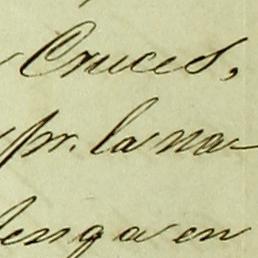 Cruces,
pr. la na-
tenga en